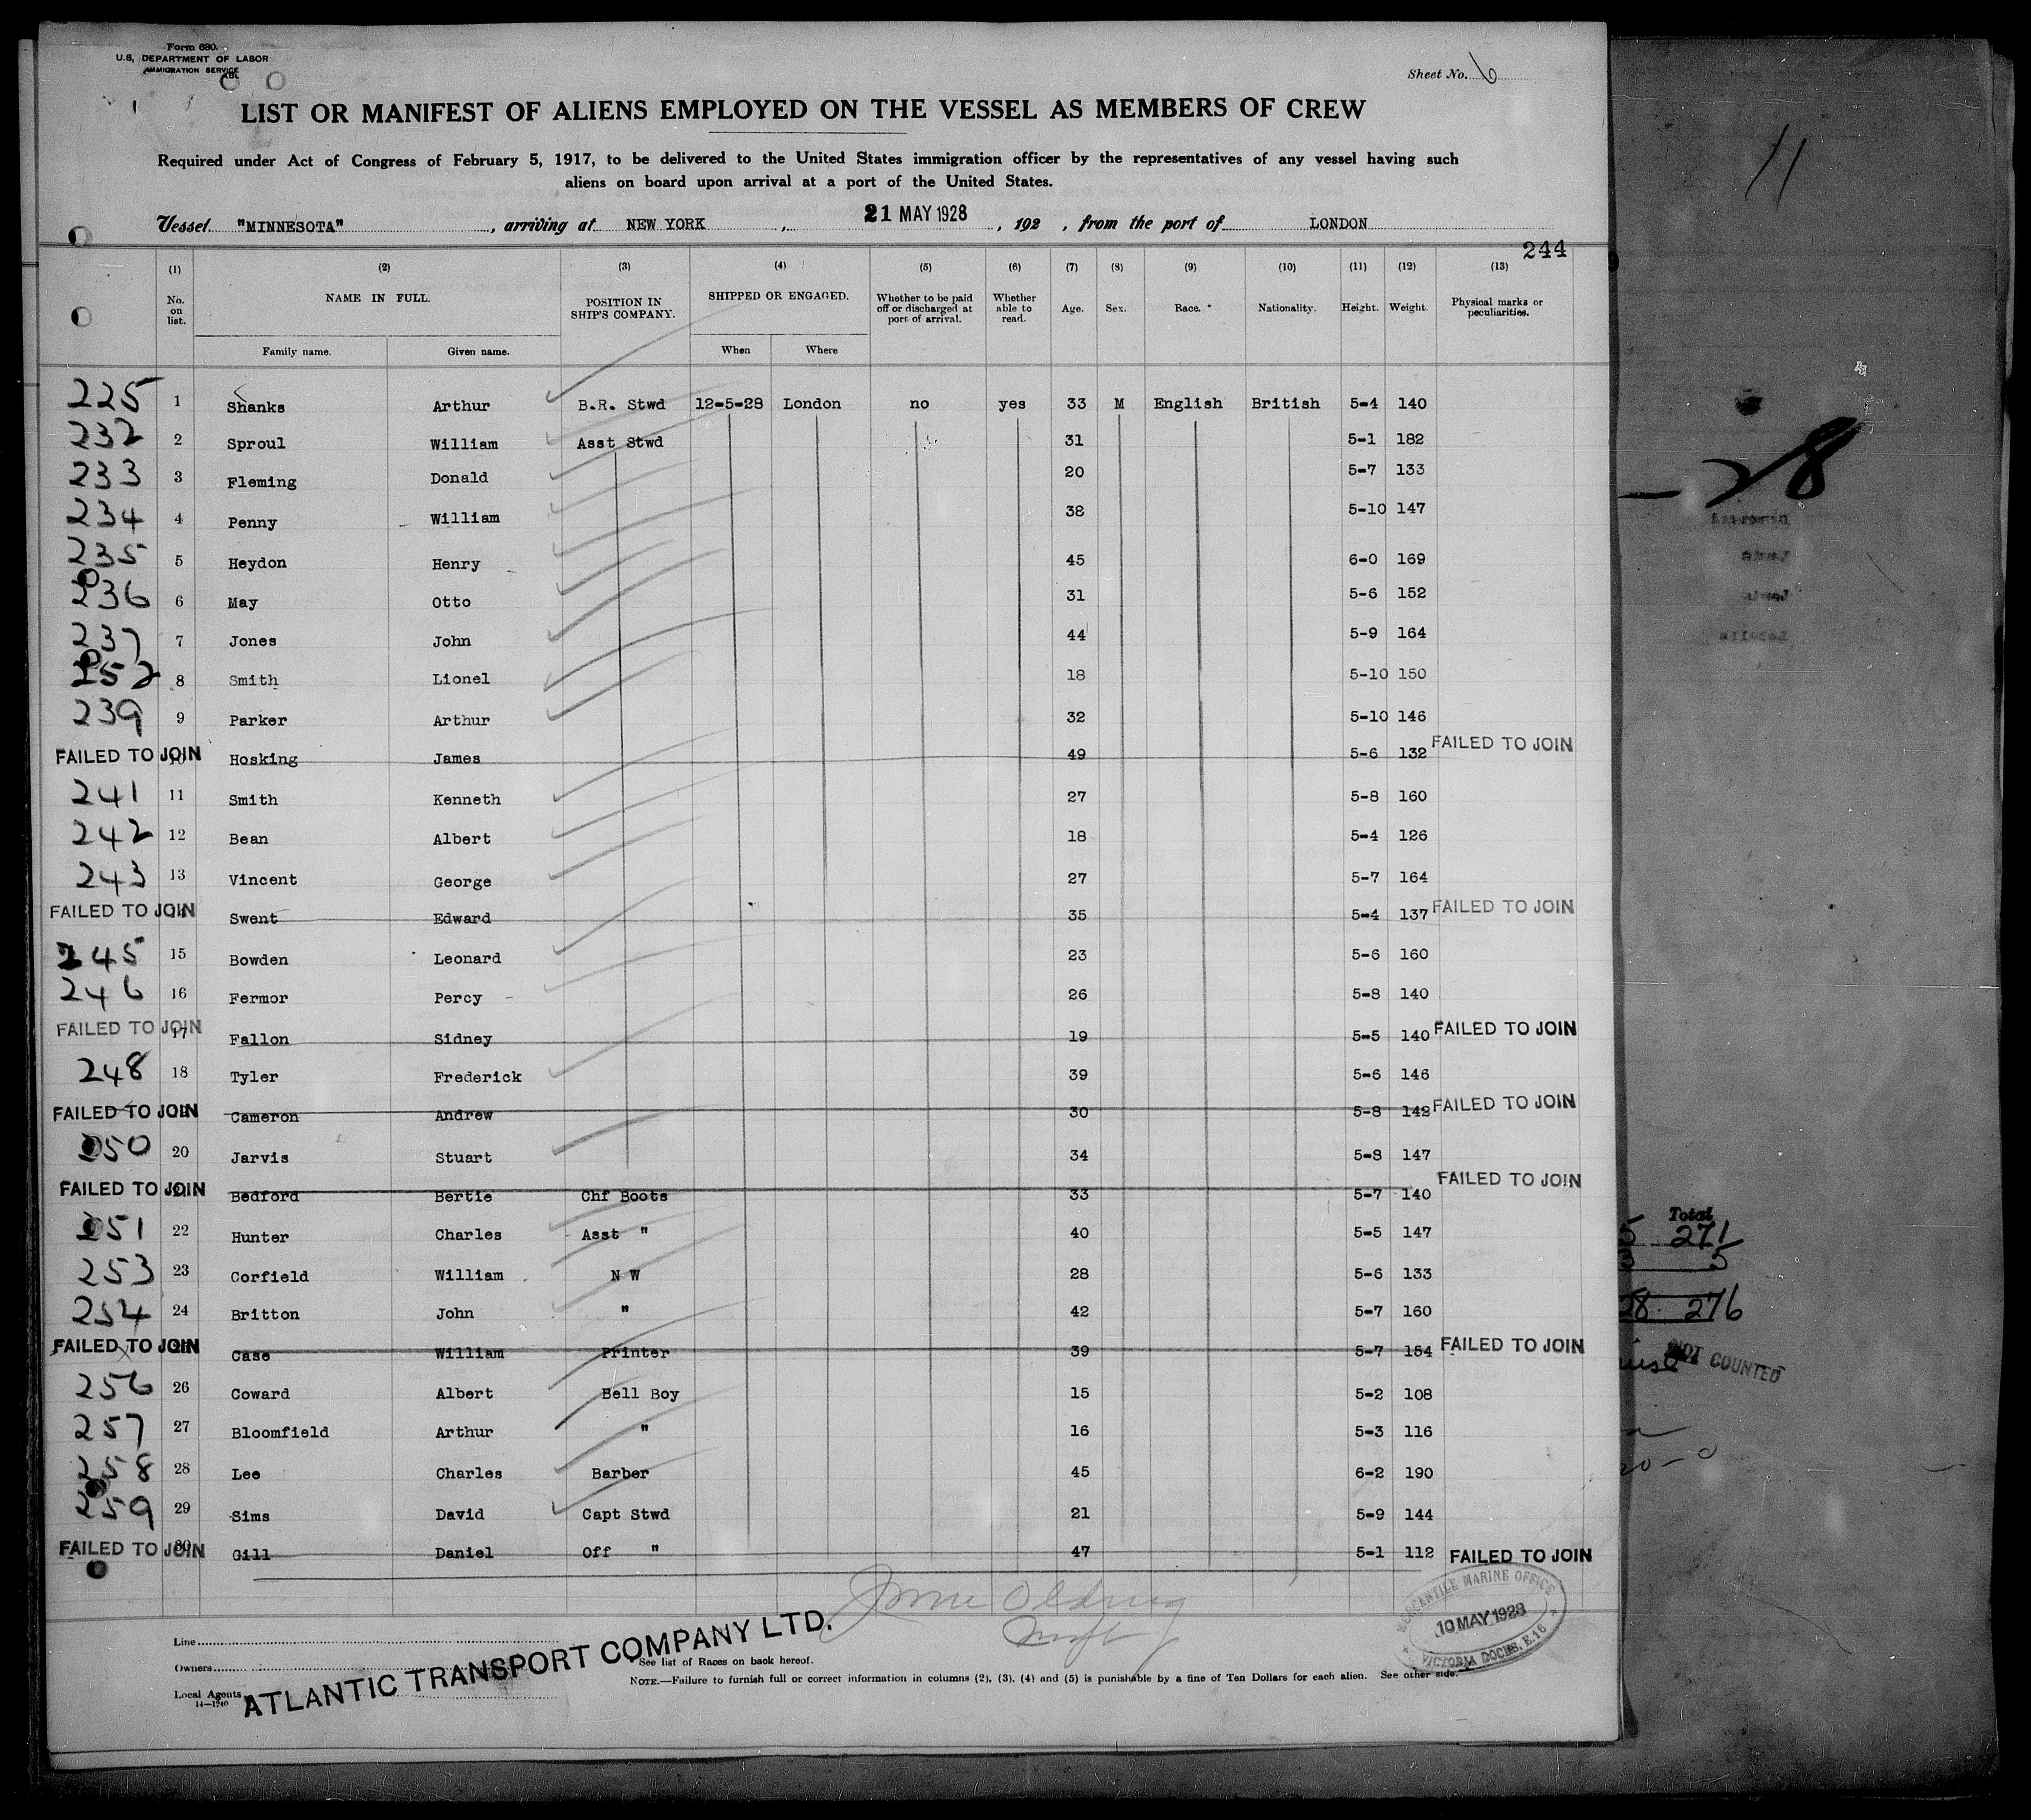 Form 680.
U.S. DEPARTMENT OF LABOR
IMMIGRATION SERVICE
Sheet No. 6
LIST OR MANIFEST OF ALIENS EMPLOYED ON THE VESSEL AS MEMBERS OF CREW
Required under Act of Congress of February 5, 1917, to be delivered to the United States immigration officer by the representatives of any vessel having such
aliens on board upon arrival at a port of the United States.
Vessel "MINNESOTA", arriving at NEW YORK, 21 MAY 1928, 192 , from the port of LONDON
244
(1) (2) (3) (4) (5) (6) (7) (8) (9) (10) (11) (12) (13)
No. on list. NAME IN FULL. POSITION IN SHIP'S COMPANY. SHIPPED OR ENGAGED. Whether to be paid off or discharged at port of arrival. Whether able to read. Age. Sex. Race.* Nationality. Height. Weight. Physical marks or peculiarities.
Family name. Given name. When Where
225 1 Shanks Arthur B.R. Stwd 12-5-28 London no yes 33 M English British 5-4 140
232 2 Sproul William Asst Stwd 31 5-1 182
233 3 Fleming Donald 20 5-7 133
234 4 Penny William 38 5-10 147
235 5 Heydon Henry 45 6-0 169
236 6 May Otto 31 5-6 152
237 7 Jones John 44 5-9 164
252 8 Smith Lionel 18 5-10 150
239 9 Parker Arthur 32 5-10 146
FAILED TO JOIN 10 Hosking James 49 5-6 132 FAILED TO JOIN
241 11 Smith Kenneth 27 5-8 160
242 12 Bean Albert 18 5-4 126
243 13 Vincent George 27 5-7 164
FAILED TO JOIN 14 Swent Edward 35 5-4 137 FAILED TO JOIN
245 15 Bowden Leonard 23 5-6 160
246 16 Fermor Percy 26 5-8 140
FAILED TO JOIN 17 Fallon Sidney 19 5-5 140 FAILED TO JOIN
248 18 Tyler Frederick 39 5-6 146
FAILED TO JOIN 19 Cameron Andrew 30 5-8 142 FAILED TO JOIN
250 20 Jarvis Stuart 34 5-8 147
FAILED TO JOIN 21 Bedford Bertie Chf Boots 33 5-7 140 FAILED TO JOIN
251 22 Hunter Charles Asst " 40 5-5 147
253 23 Corfield William N W 28 5-6 133
254 24 Britton John " 42 5-7 160
FAILED TO JOIN 25 Case William Printer 39 5-7 154 FAILED TO JOIN
256 26 Coward Albert Bell Boy 15 5-2 108
257 27 Bloomfield Arthur " 16 5-3 116
258 28 Lee Charles Barber 45 6-2 190
259 29 Sims David Capt Stwd 21 5-9 144
FAILED TO JOIN 30 Gill Daniel Off " 47 5-1 112 FAILED TO JOIN
MERCANTILE MARINE OFFICE
10 MAY 1928
VICTORIA DOCKS, E.16
Line
Owners
Local Agents
14—1240
ATLANTIC TRANSPORT COMPANY LTD.
*See list of Races on back hereof.
NOTE.—Failure to furnish full or correct information in columns (2), (3), (4) and (5) is punishable by a fine of Ten Dollars for each alien. See other side.
11
28
Total
5 271
5
28 276
NOT COUNTED